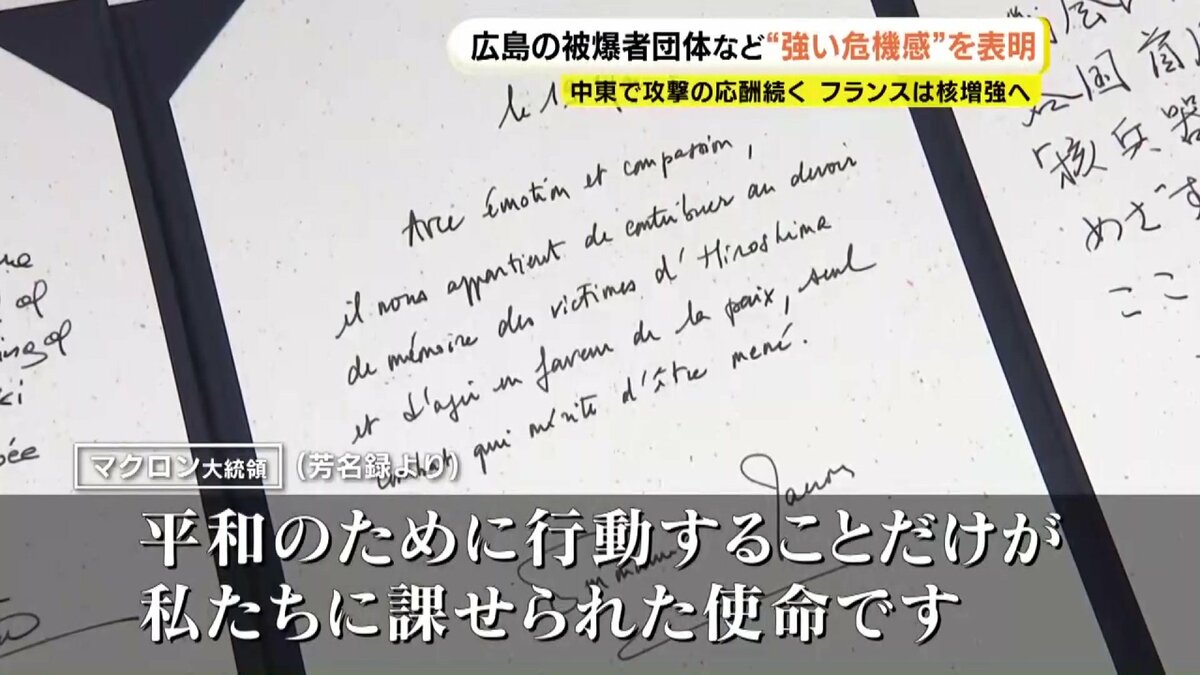 広島の被爆者団体など“強い危機感”を表明
中東で攻撃の応酬続く フランスは核増強へ
le 1
Avec émotion et compassion,
il nous appartient de contribuer au devoir
de mémoire des victimes d'Hiroshima
et d'agir en faveur de la paix, seul
combat qui mérite d'être mené.
各国首
「核兵器
めざす
ここ
マクロン大統領 (芳名録より)
平和のために行動することだけが
私たちに課せられた使命です